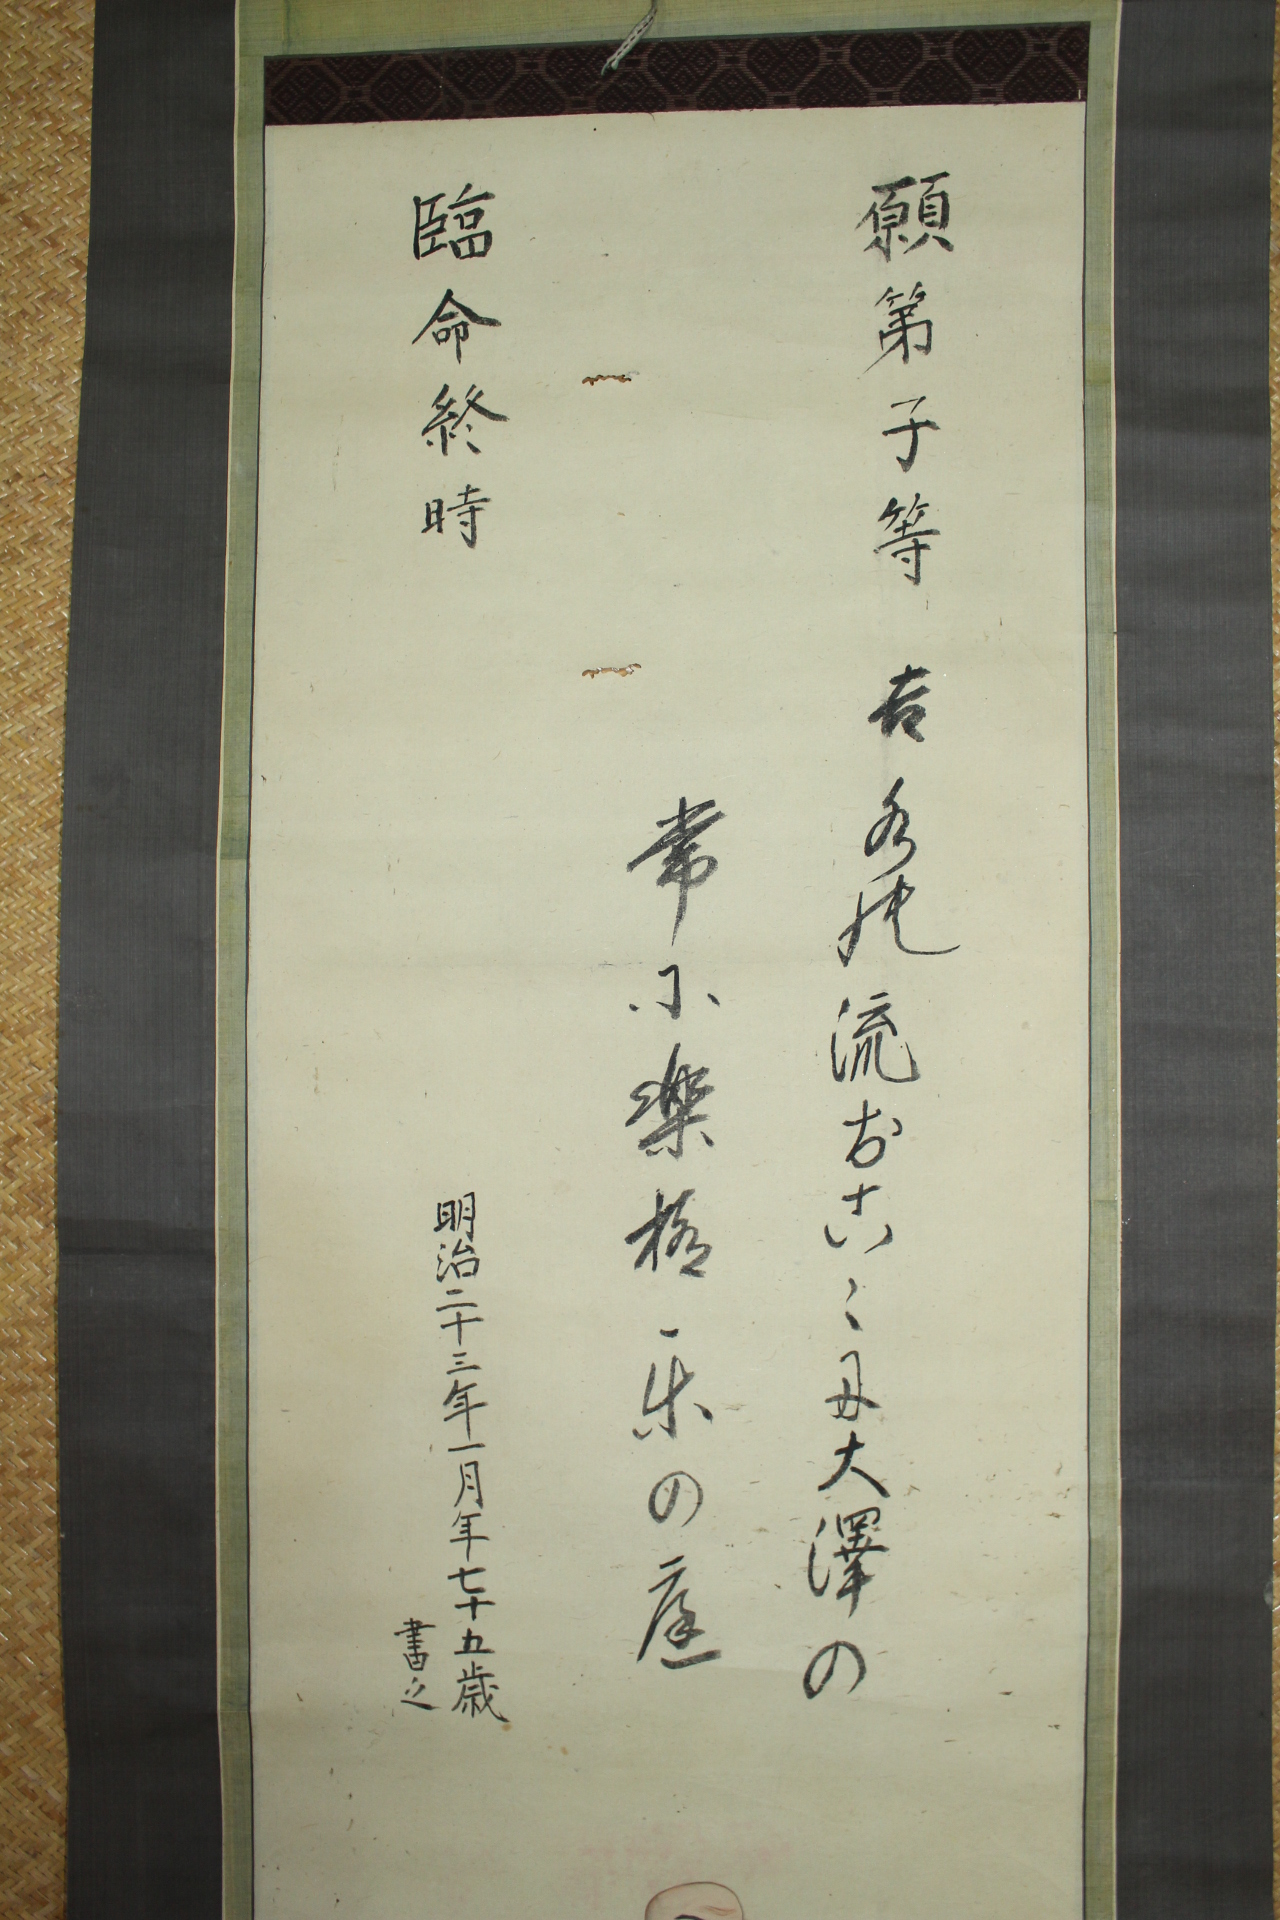 願第子等
吉水能流お古ゝ丹大澤の
常尓楽極楽の庭
臨命終時
明治二十三年一月年七十五歳
書之